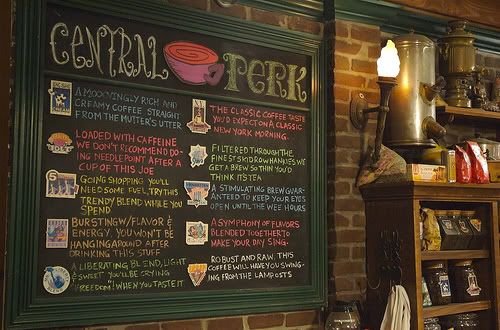 CENTRAL PERK
A MOCKINGLY RICH AND
CREAMY COFFEE STRAIGHT
FROM THE MUTTER'S UTTER
LOADED WITH CAFFEINE
WE DON'T RECOMMEND DO-
ING NEEDLEPOINT AFTER A
CUP OF THIS JOE
GOING SHOPPING? YOU'LL
NEED SOME FUEL, TRY THIS
TRENDY BLEND WHILE YOU
SPEND
BURSTING W/ FLAVOR &
ENERGY. YOU WON'T BE
HANGING AROUND AFTER
DRINKING THIS STUFF
A LIBERATING BLEND, LIGHT
& SWEET YOU'LL BE CRYING
"FREEDOM!" WHEN YOU TASTE IT
THE CLASSIC COFFEE TASTE
YOU'D EXPECT ON A CLASSIC
NEW YORK MORNING.
FILTERED THROUGH THE
FINEST SKID ROW HANKIES WE
GET A BREW SO THIN YOU'D
THINK ITS TEA
A STIMULATING BREW GUAR-
ANTEED TO KEEP YOUR EYES
OPEN UNTIL THE WEE HOURS
A SYMPHONY OF FLAVORS
BLENDED TOGETHER TO
MAKE YOUR DAY SING.
ROBUST AND RAW. THIS
COFFEE WILL HAVE YOU SWING-
ING FROM THE LAMPOSTS